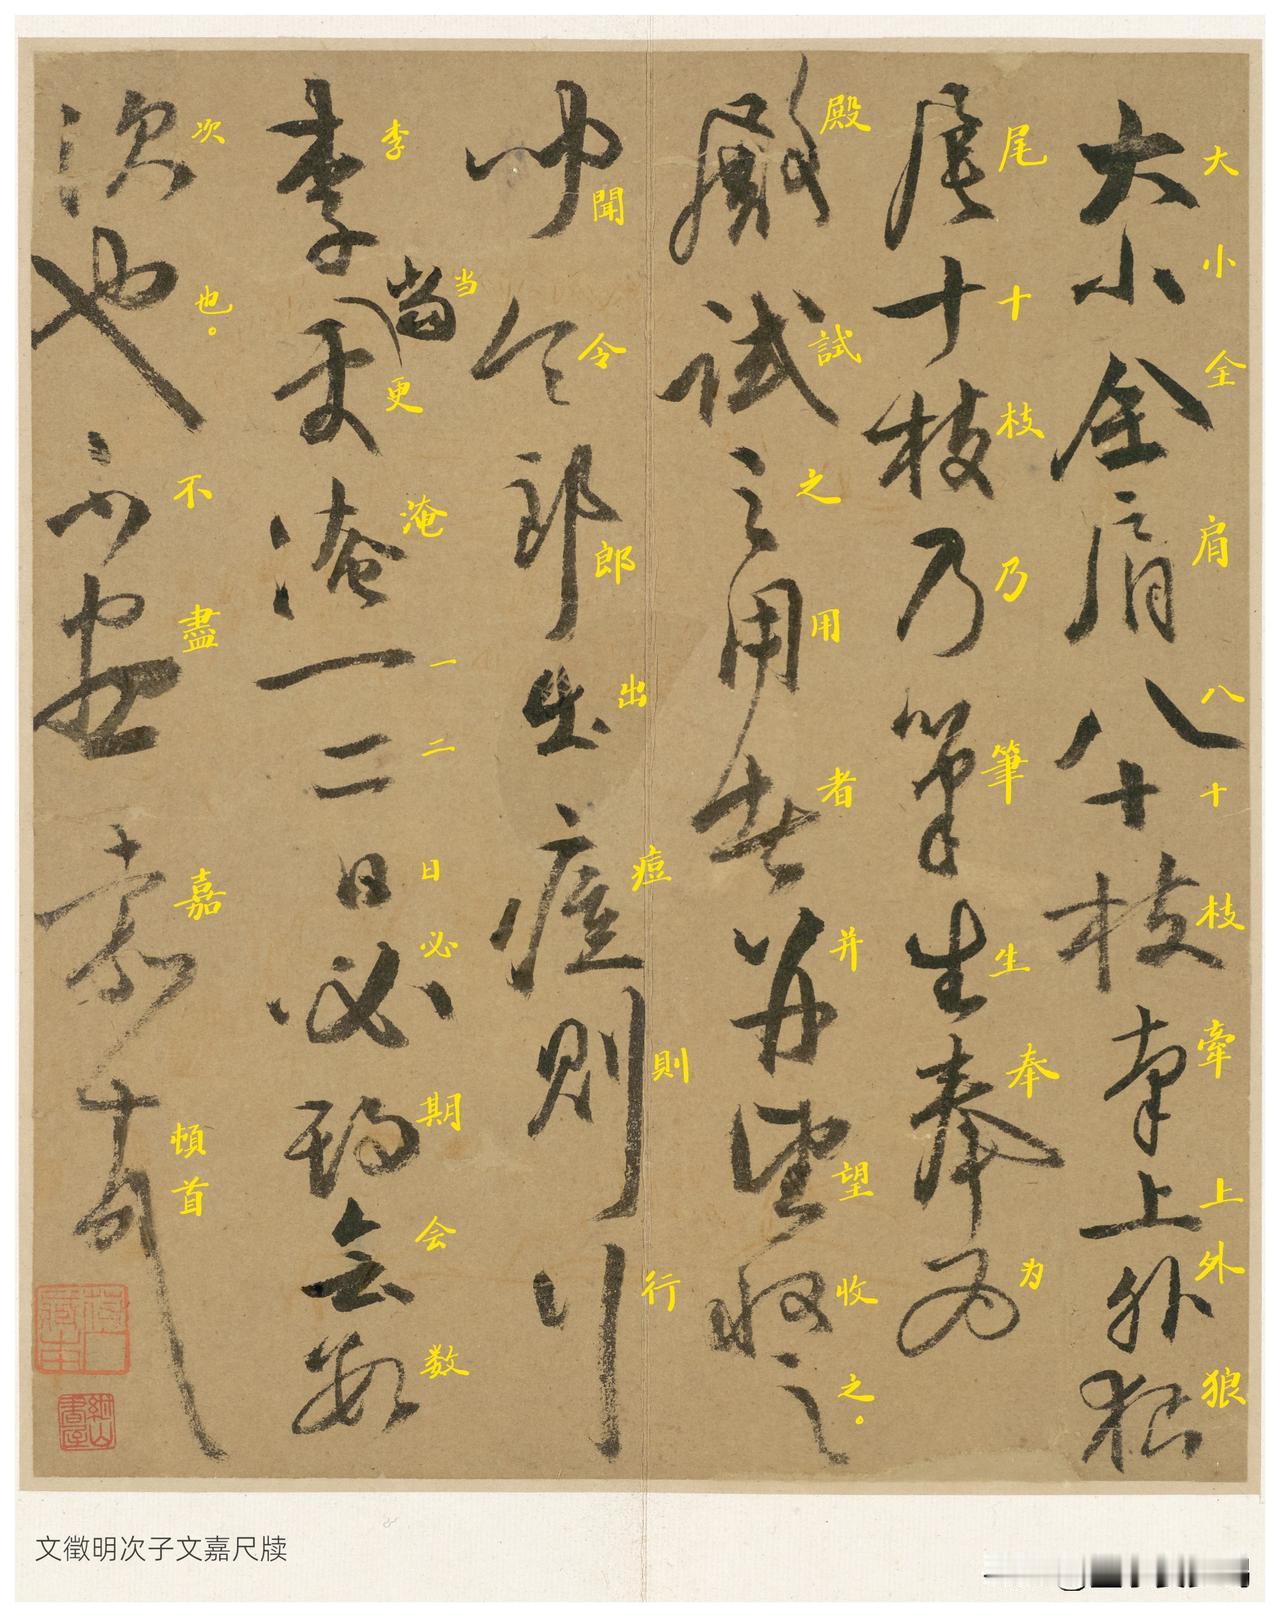 大小全肩八十枝牽上外狼
尾十枝乃筆生奉为
殿試之用者并望收之。
聞令郎出痘則行
李当更淹一二日必期会数
次也。不盡嘉頓首
文徵明次子文嘉尺牍